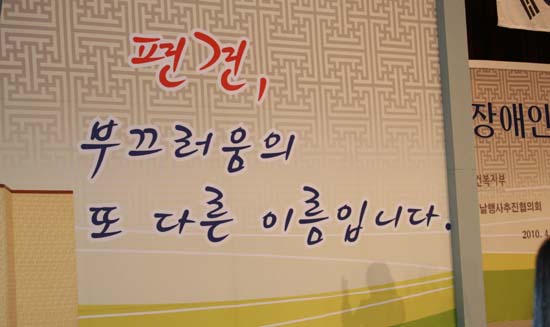 편견,
부끄러움의
또 다른 이름입니다.
장애인
건복지부
날행사추진협의회
2010. 4.